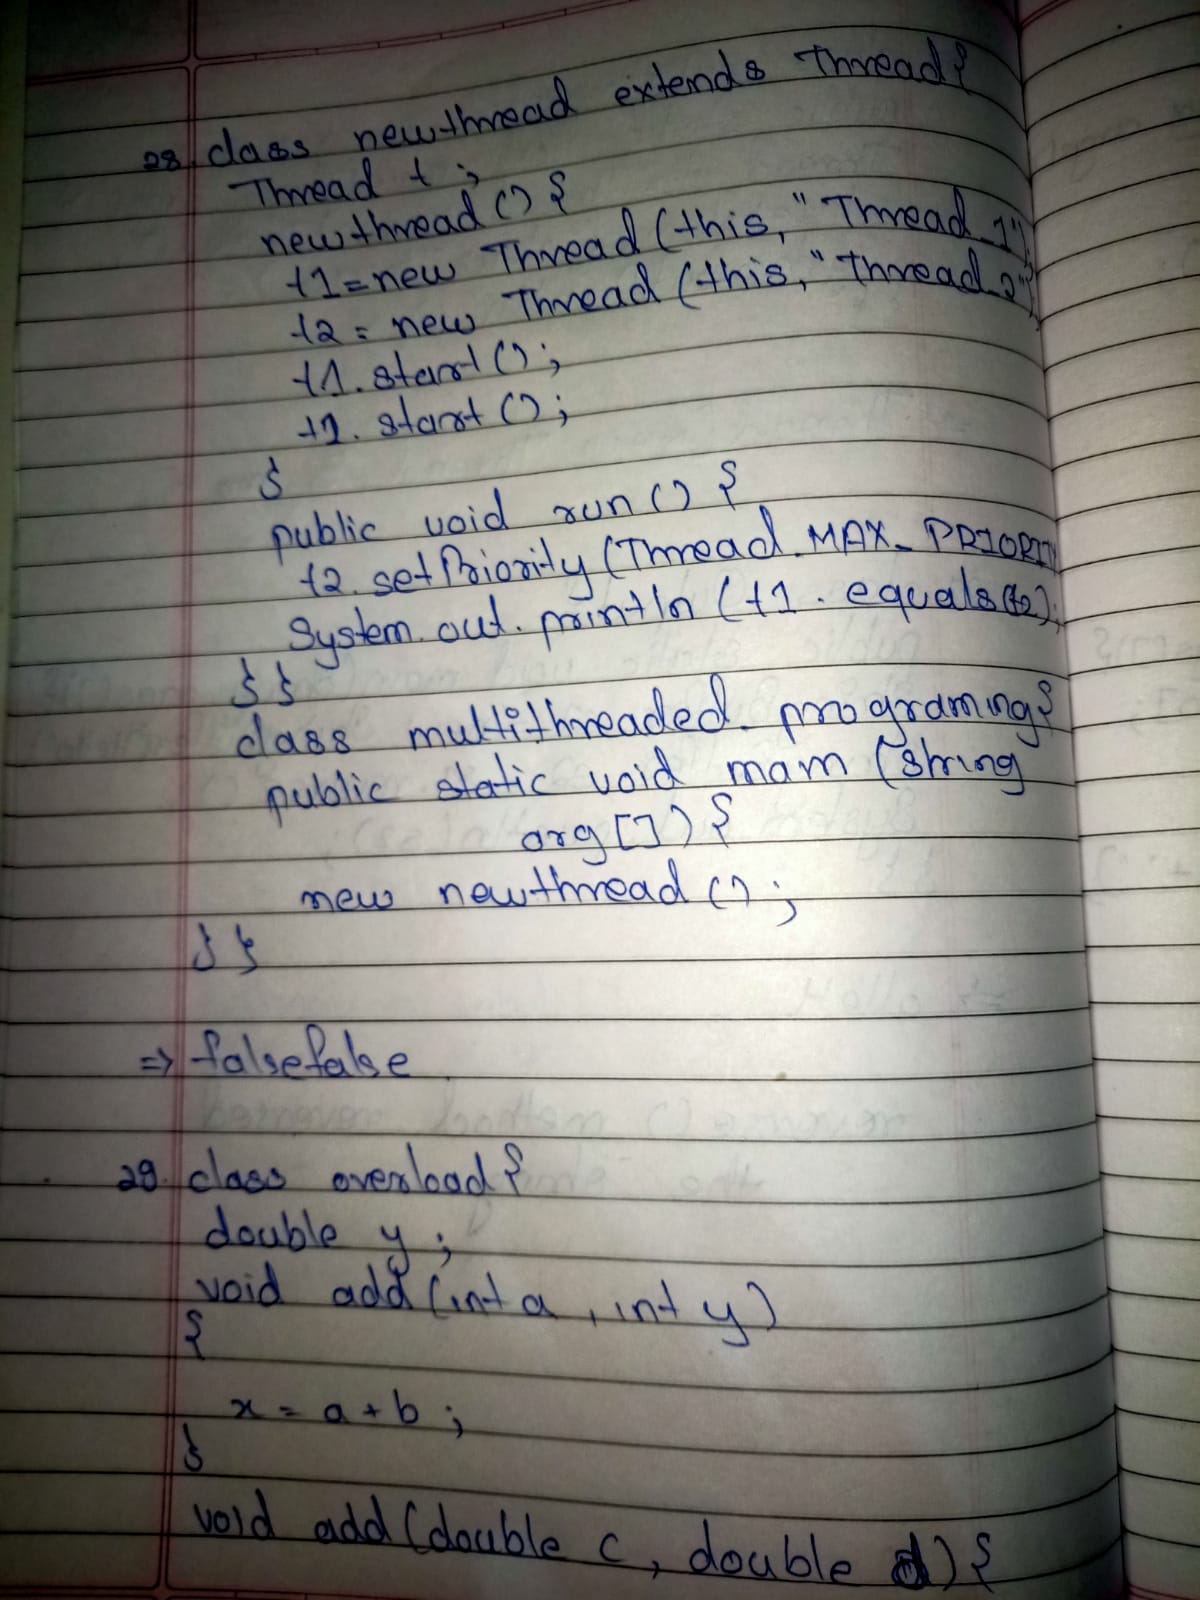 28. class newthread extends Thread{
Thread t ;
newthread () {
t1=new Thread (this, "Thread_1");
t2 = new Thread (this, "thread_2")
t1. start () ;
t2. start () ;
}
public void run () {
t2. setPriority (Thread.MAX_PRIORITY
System. out. println (t1. equals(t2);
} }
class multithreaded_programing{
public static void main (String
arg []) {
new newthread () ;
} }
=> falsefalse
29. class overload {
double y ;
void add (int a , int y)
{
x = a + b ;
}
void add (double c, double d) {